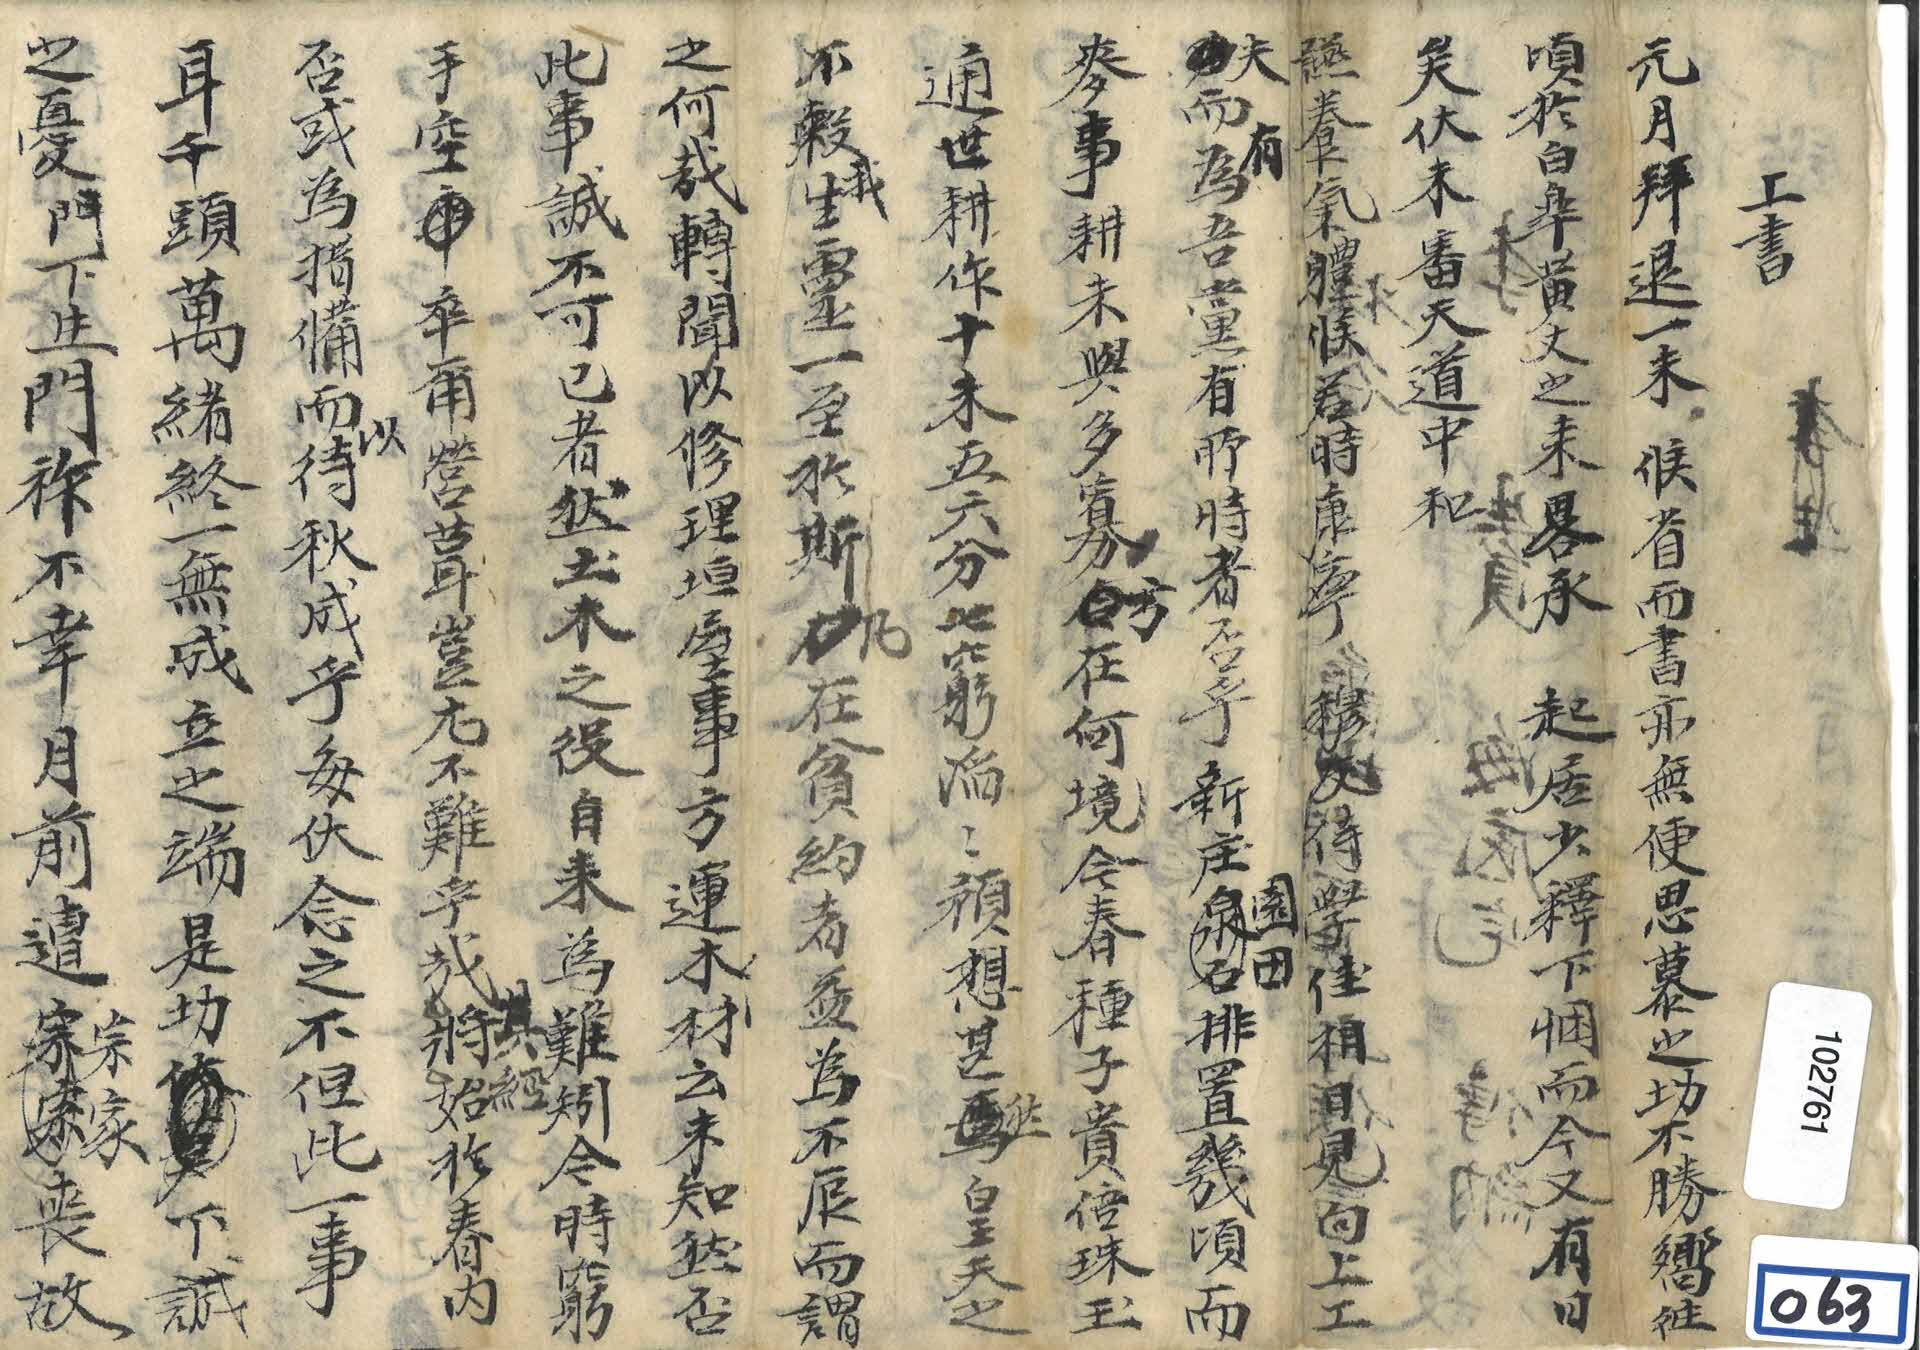 上書
元月拜退一未 候省而書亦無便思慕之功不勝嚮往
頃於白皐黃丈之來畧承 起居少釋下悃而今又有日
矣伏未審天道中和
謹羣氣體候若時康寧 待學佳相日見向上工
夫而有為吾黨有所時者否乎新庄園田石排置幾頃而
麥事耕未與多寡方在何境今春種子貴倍珠玉
通世耕作十未五六分此窮滔〻顒想甚 皇天之
不穀我生靈一至於斯凡在貧約者益為不辰而謂
之何哉轉聞以修理垣屋事方運木材云未知然否
此事誠不可已者然土木之役自來為難矧今時窮
手空 卒甭營葺豈尤不難乎哉其經始於春內
否或為措備而以待秋成乎每伏念之不但此一事
耳千頭萬緒終一無成立之端是功 下誠
之憂門下生門祚不幸月前遭宗家喪故
102761
063